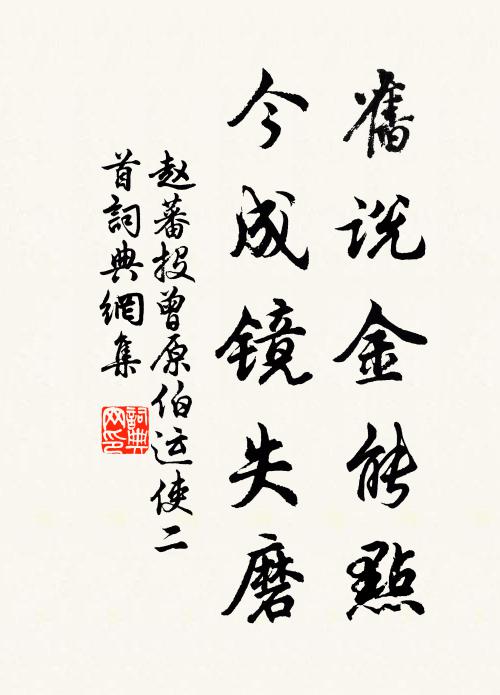 舊说金能點
今成镜失磨
赵蕃投曾原伯运使二
首詞典網集
詞典
网印